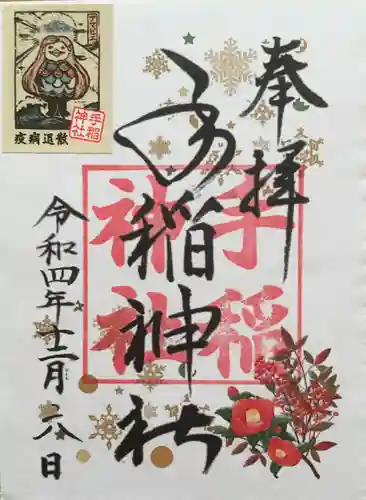 奉拝
手稲神社
手稲
神社
令和四年十二月二八日
アマビエ
疫病退散
手稲
神社